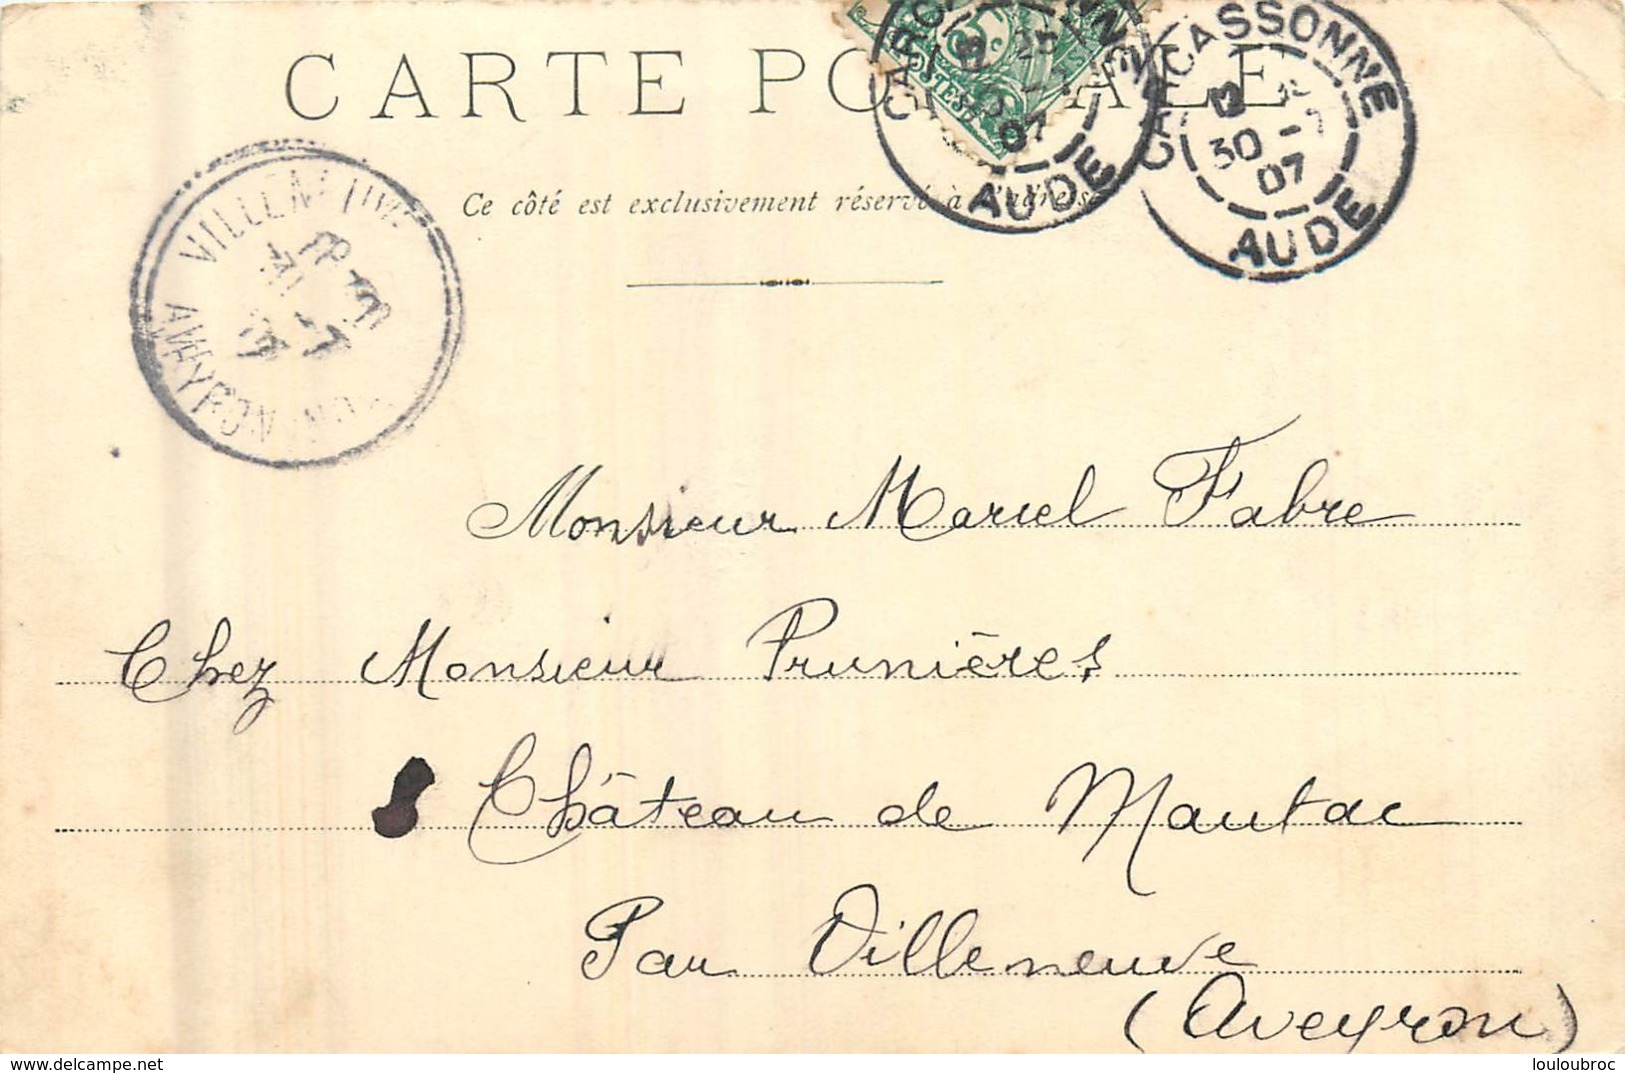 CARTE POSTALE
Ce côté est exclusivement réservé à l'adresse
CARCASSONNE
AUDE
07
CARCASSONNE
30 -7
07
AUDE
POSTES
VILLENEUVE
AVEYRON
Monsieur Marcel Fabre
Chez Monsieur Prunières
Château de Mautac
Par Villeneuve
(Aveyron)
delcampe.net
louloubroc